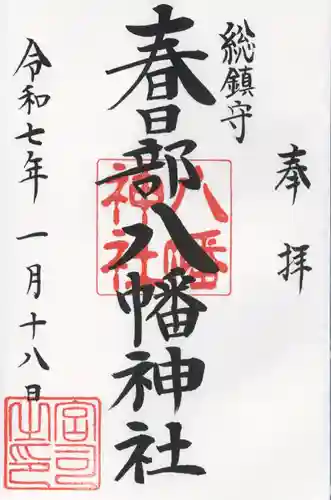 奉拝
総鎮守
春日部八幡神社
八幡神社
令和七年一月十八日
宮司之印